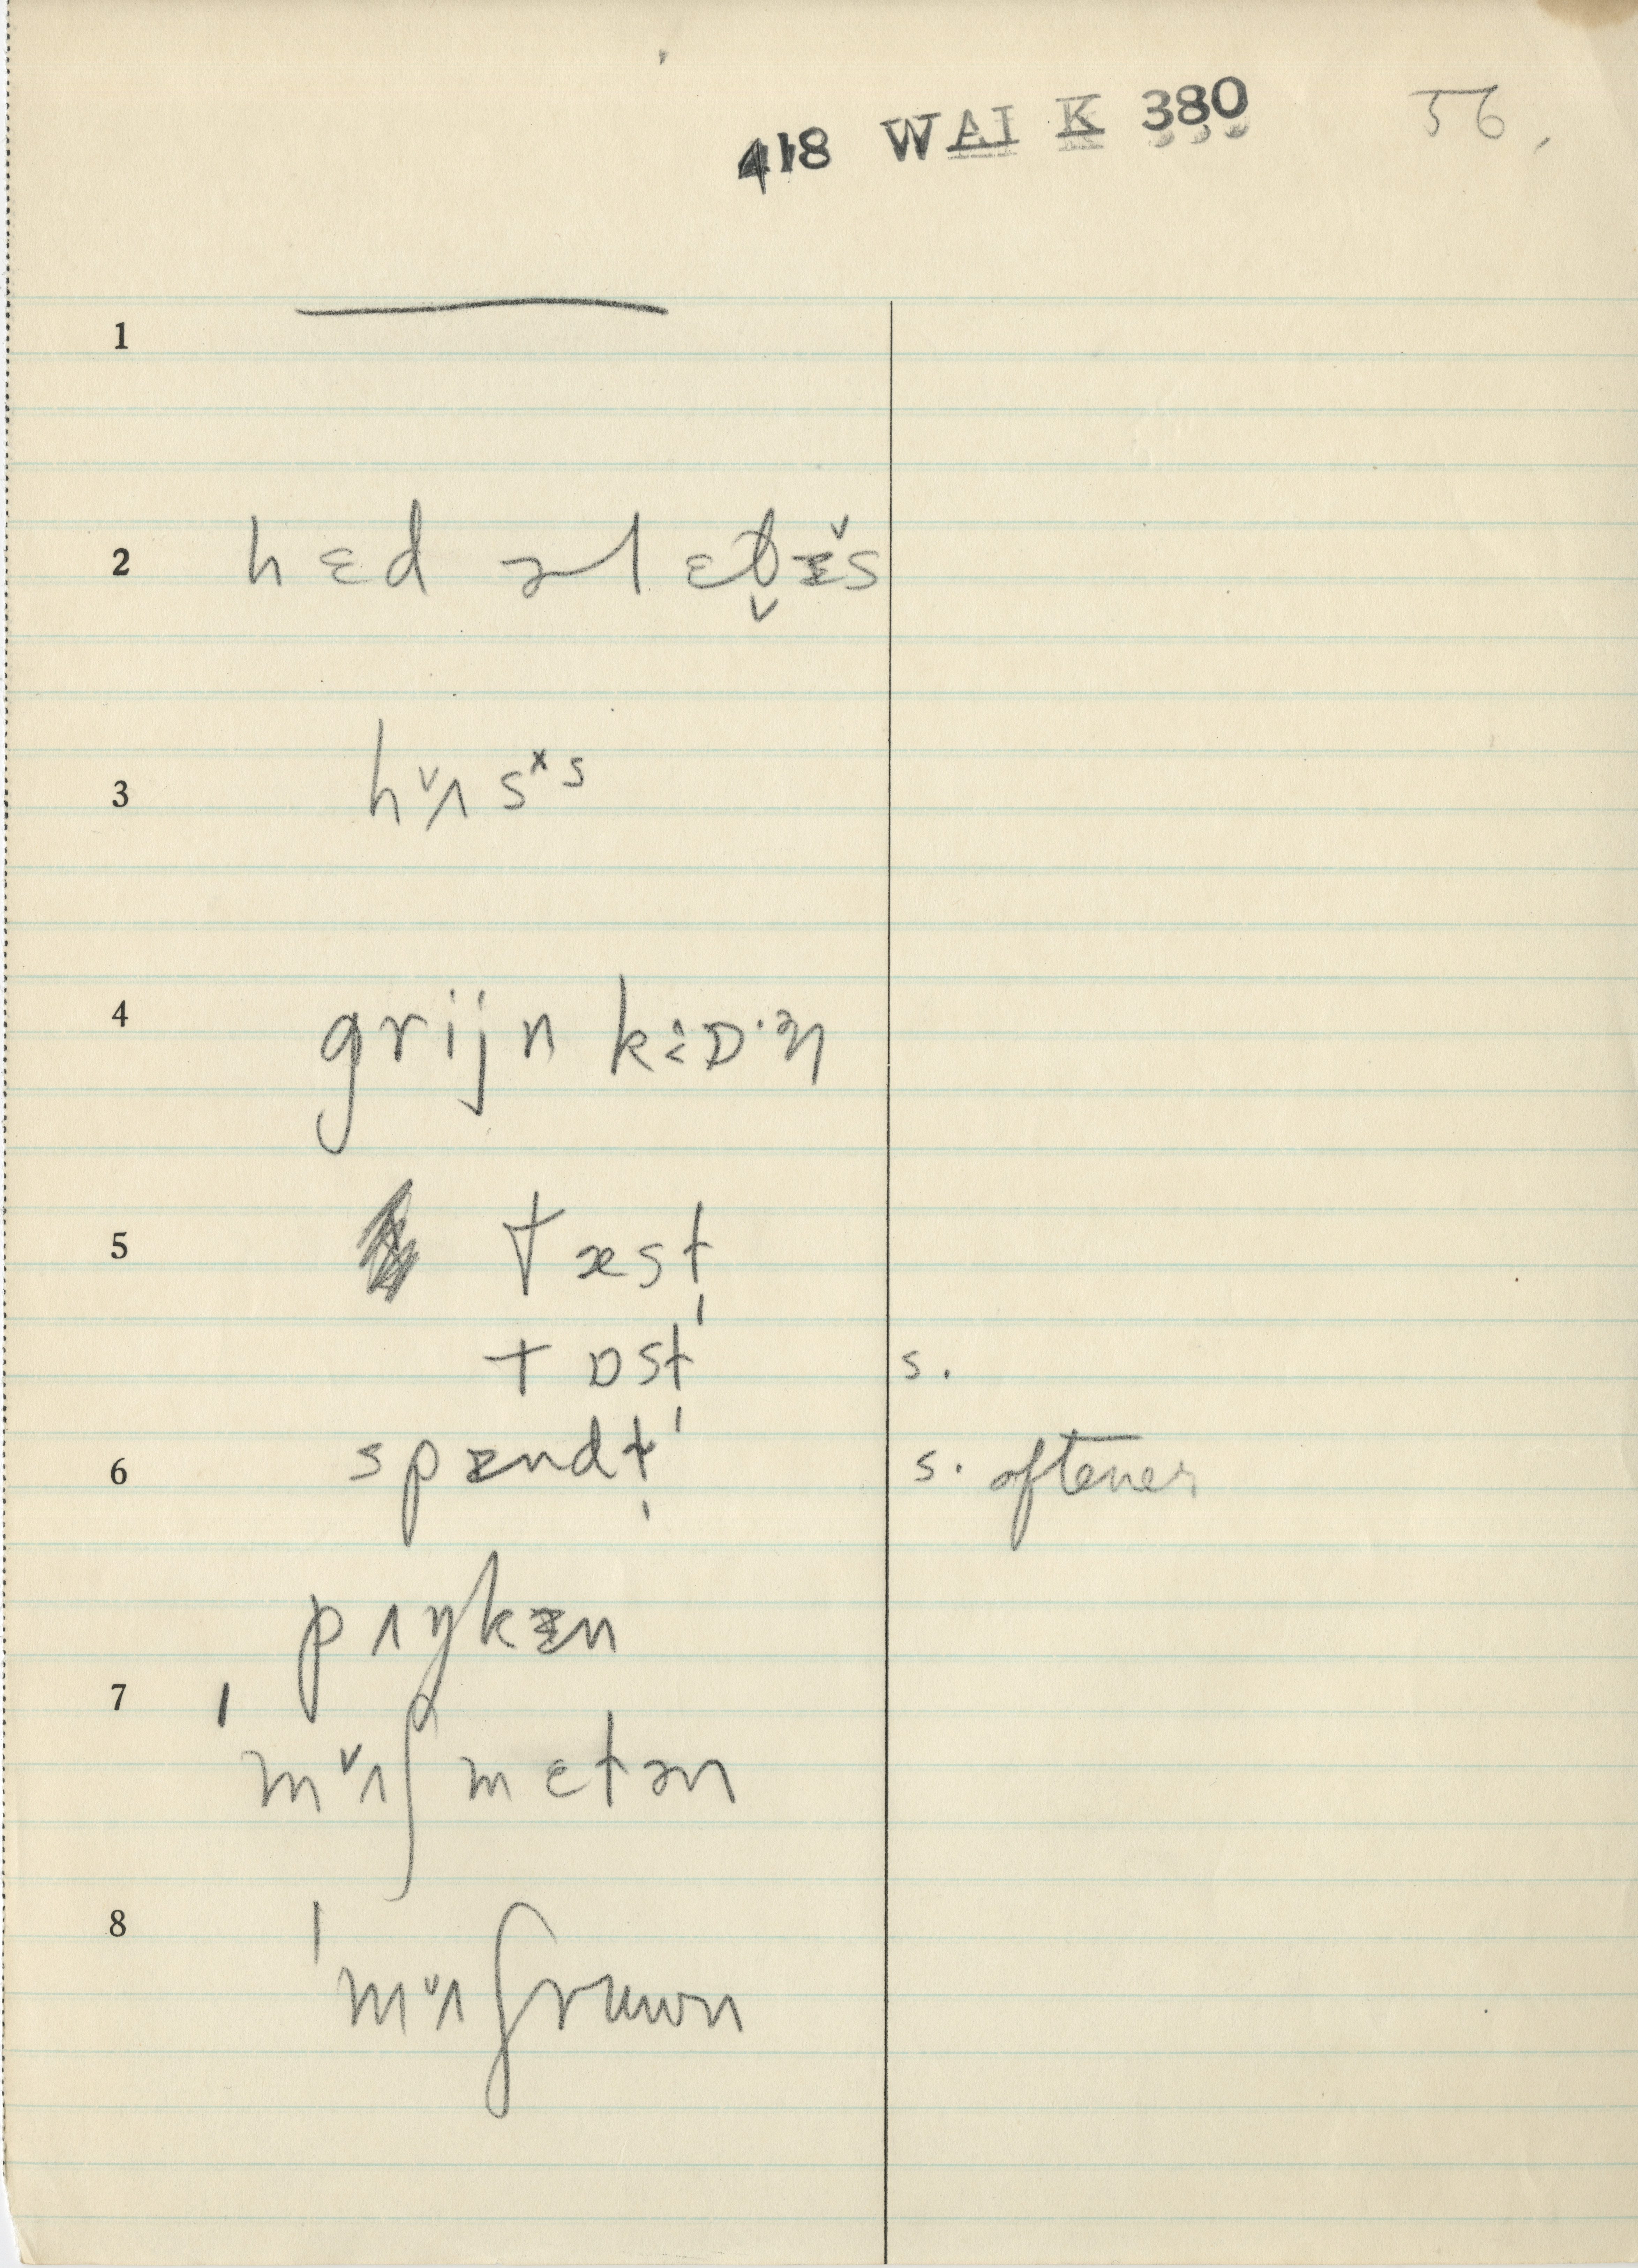 418 WAI K 380 56.
1 ———
2 hɛd əl ɛt̬ɪ̌s
3 hᵛʌsˣs
4 grijn kɔːɒ·ən
5 tæst
tɒst' s.
6 spɛndt' s. oftener
pʌŋkɪn
7 'mᵛʌʃmɛtən
8 'mᵛʌʃruwn